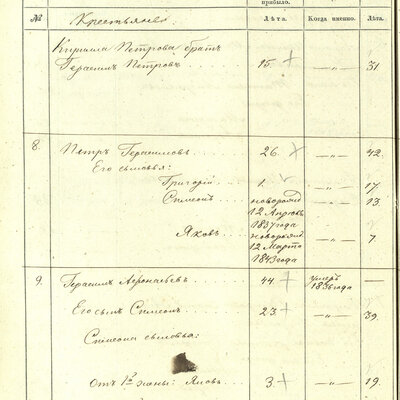 прибыло.
№ Крестьяне. Лѣта. Когда именно. Лѣта.
Кирила Петрова братъ
Герасимъ Петровъ 15. —„— 31
8. Петръ Герасимовъ 26. —„— 42.
Его сыновья:
Григорій 1. —„— 17
Симеонъ новорожд. —„— 13.
12 Апрѣля
1837 года
Яковъ новорожд. —„— 7.
12 Марта
1843 года
9. Герасимъ Афонасьевъ 44 умеръ —
1836 года
Его сынъ Симеонъ 23 —„— 39.
Симеона сыновья:
Отъ 1й жены: Яковъ 3 —„— 19.